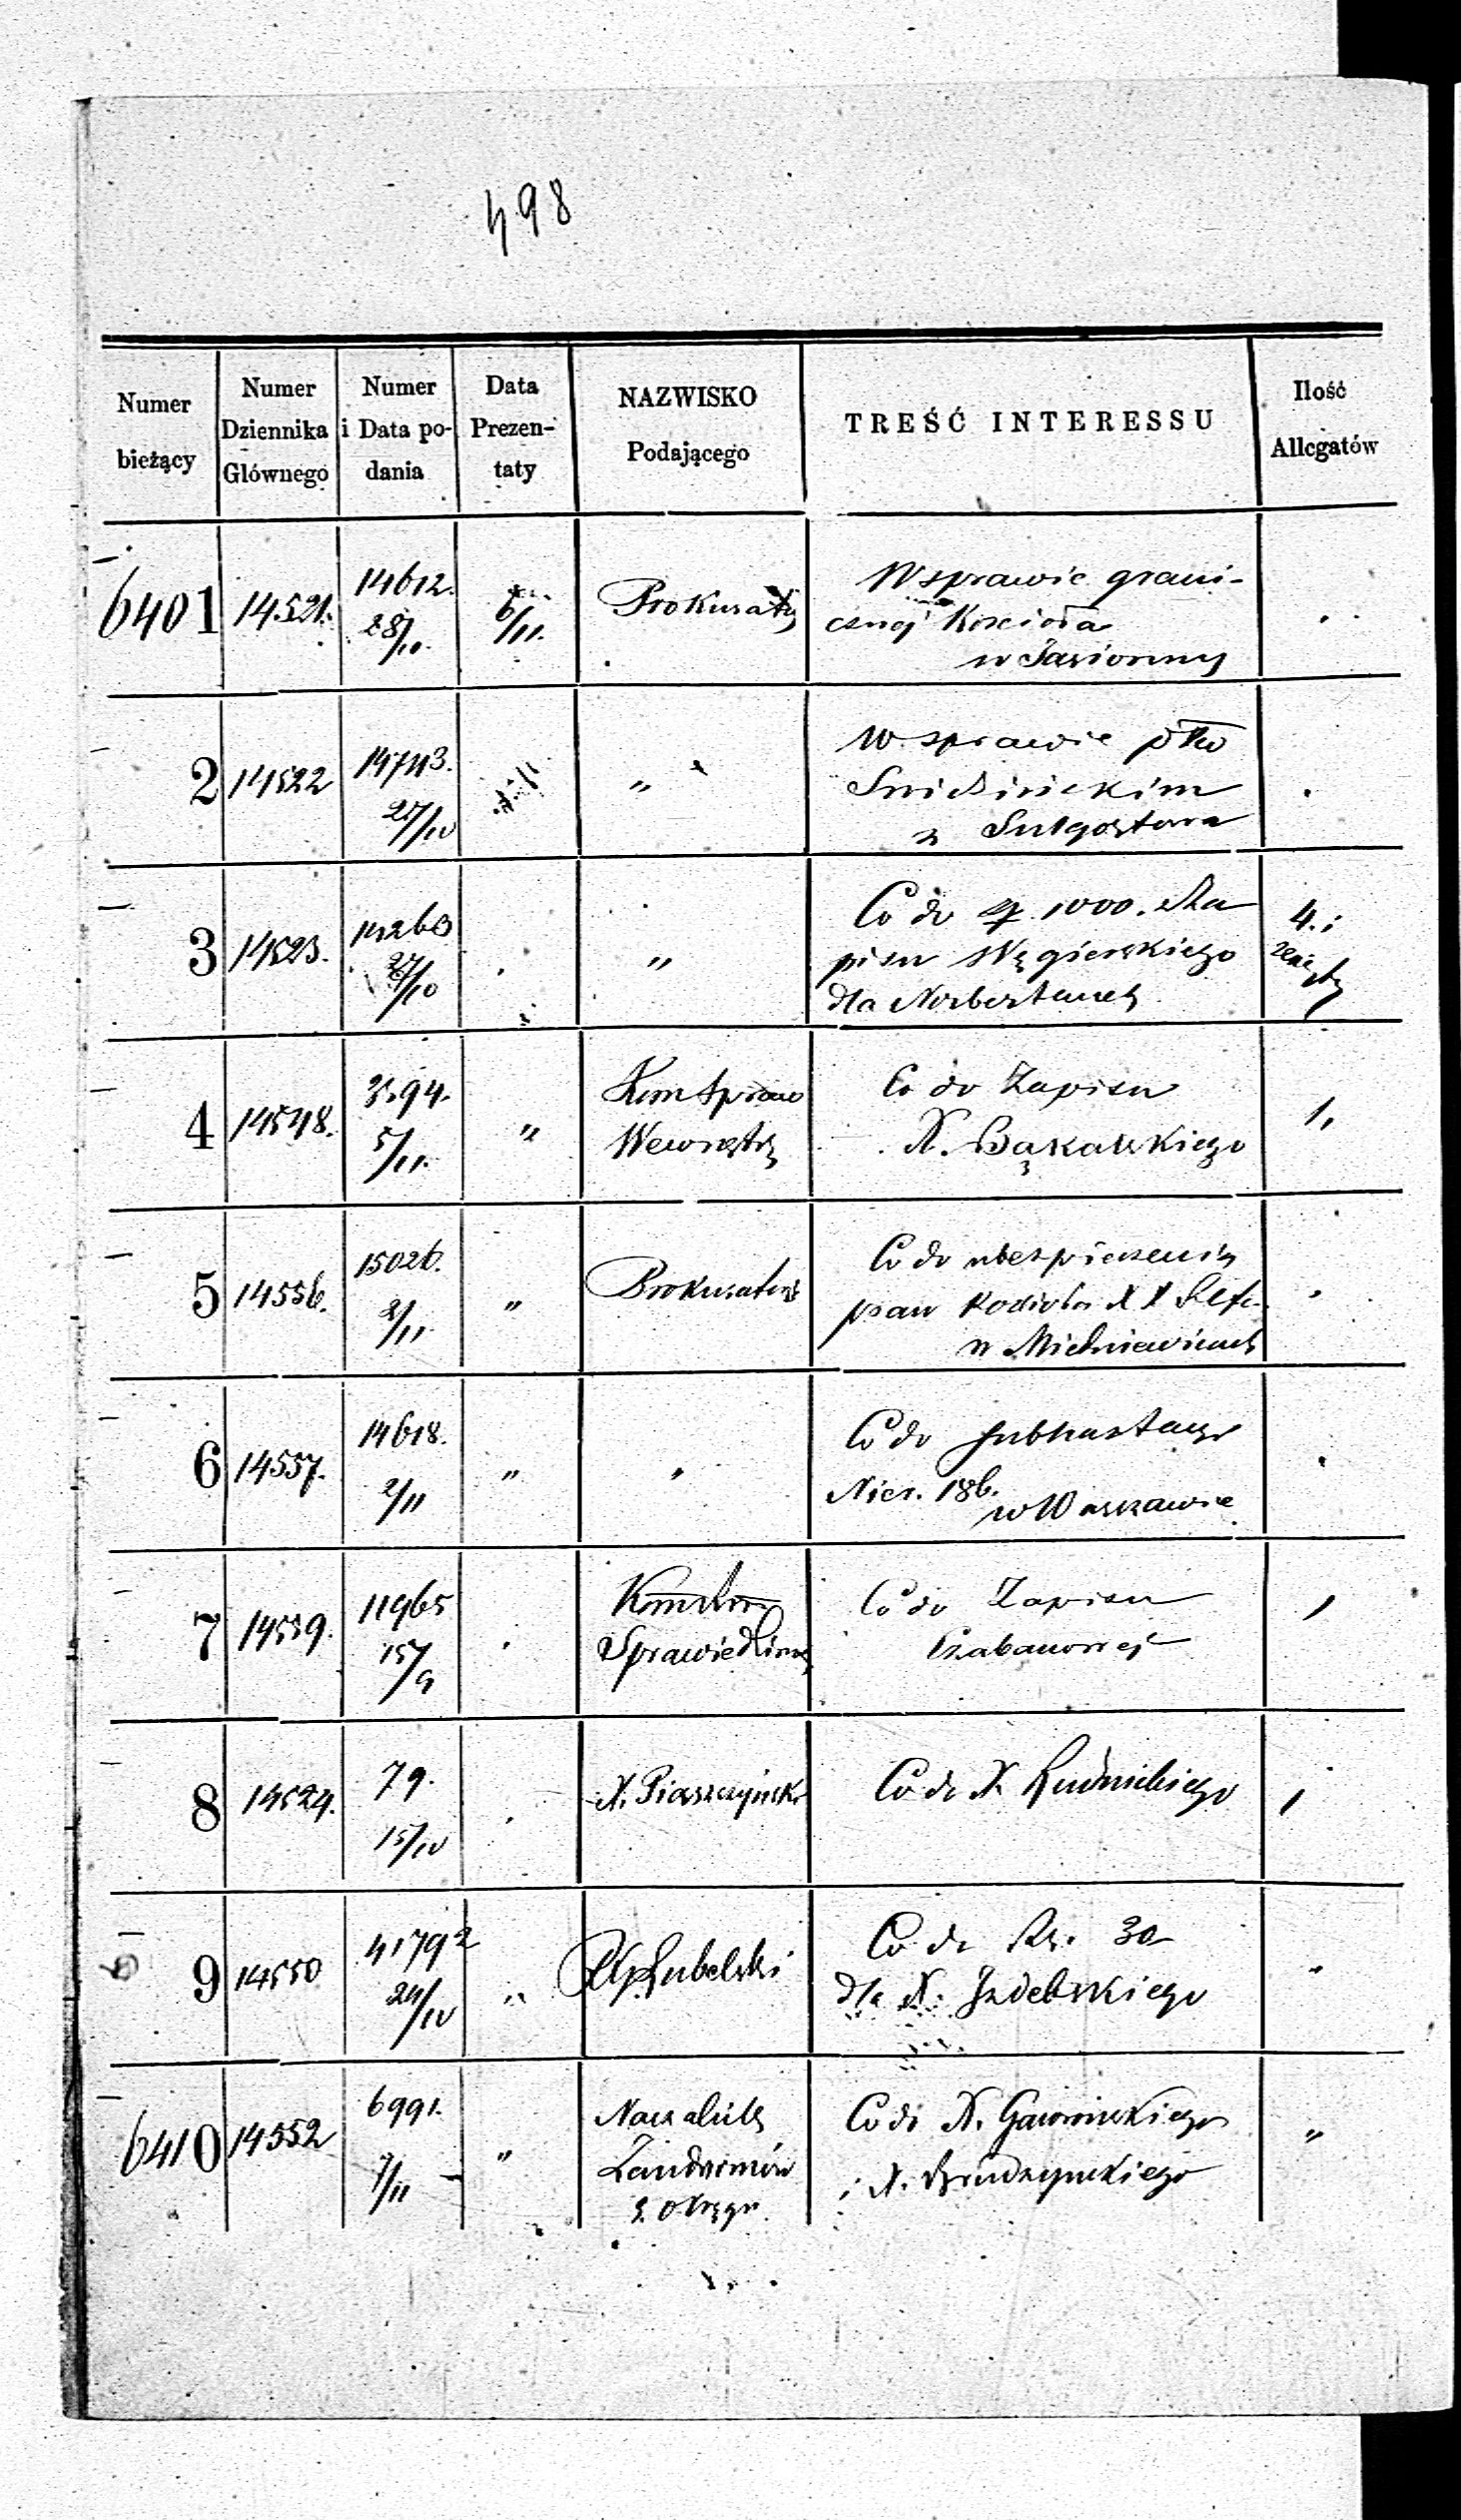 498
Numer bieżący
Numer Dziennika Głównego
Numer i Data podania
Data Prezentaty
NAZWISKO Podającego
TREŚĆ INTERESSU
Ilość Allegatów
6401 14521. 14612. 28/10. 6/11. Prokurat
W sprawie grani-
cznej Kościoła
w
2 14522 14743. 27/10 „
W sprawie
z
3 14523. 14263 27/10 „
Co do 1000. Za
pisu Węgierskiego
dla Norbertanek
4.
4 14548. 5/11. „ Kom Spraw
Wewnętrz
Co do Zapisu
X. Bąkowskiego
1,
5 14556. 15026. 2/11. „ Prokurator
Co do ubezpieczenia
praw Kościoła X X Ref.
w Miedniewicach
6 14557. 14618. 2/11 „ „
Co do subhastacyi
Nier. 186.
w Warszawie
7 14559. 11965 15/9
Sprawiedliwoś
Co do Zapisu
8 14524. 79. 15/10 X. Piaszczyńsk
Co do X Rudnickiego
9 14550 41792 24/10 „ Lubelski
Co do Rs. 30
dla X. Izdebskiego
„
6410 14552 6991. 7/11 „ Naczelnik
Żandarmów
Okręgu
Co do X.
i X.
„